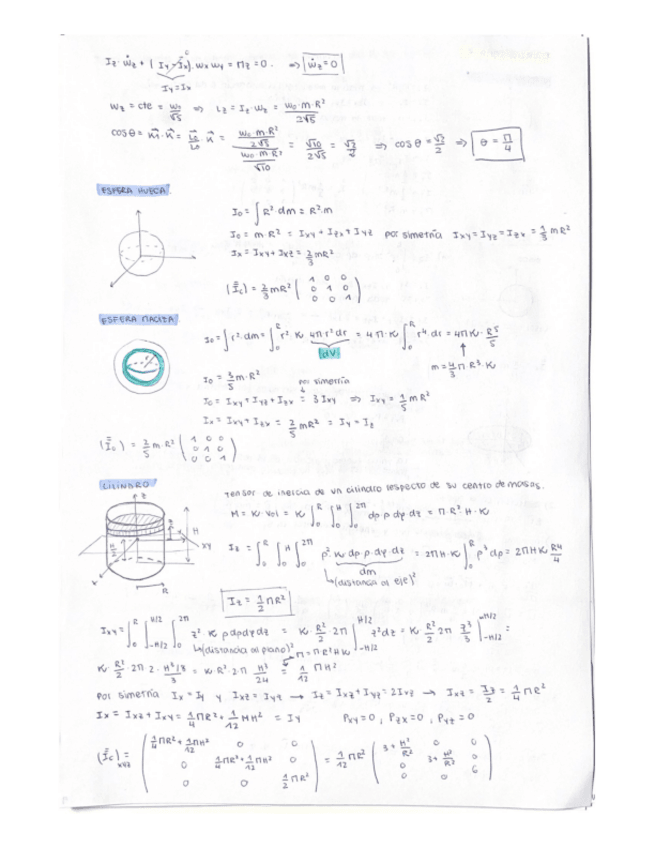 Iz·ẇz + (Iy-Ix)·wx wy = Mz = 0. ⇒ ẇz = 0
Iy=Ix
wz = cte = w0/√5 ⇒ Lz = Iz·wz = w0·m·R²/2√5
cosθ = = √10/2√5 = √2/2 ⇒ cosθ = √2/2 ⇒ θ = π/4
ESFERA HUECA
I0 = ∫ R²·dm = R²·m
I0 = m R² = Ixy + Izx + Iyz por simetría Ixy = Iyz = Izx = 1/3 mR²
Ix = Ixy + Ixz = 2/3 mR²
(Ic) = 2/3 mR² ( 1 0 0
0 1 0
0 0 1 )
ESFERA MACIZA
I0 = ∫ r²·dm = ∫₀ᴿ r²·K·4π·r²dr = 4π·K ∫₀ᴿ r⁴·dr = 4π·K·R⁵/5
dV
m = 4/3 π R³·K
I0 = 3/5 m·R²
por simetría
I0 = Ixy + Iyz + Izx = 3 Ixy ⇒ Ixy = 1/5 m R²
Ix = Ixy + Izx = 2/5 mR² = Iy = Iz
(Ic) = 2/5 m·R² ( 1 0 0
0 1 0
0 0 1 )
CILINDRO
Tensor de inercia de un cilindro respecto de su centro de masas.
z
H
xy
x
R
M = K·Vol = K ∫₀ᴿ ∫₀ᴴ ∫₀²π dρ·ρ dφ dz = π·R²·H·K
Iz = ∫₀ᴿ ∫₀ᴴ ∫₀²π ρ² K dρ·ρ·dφ·dz = 2πH·K ∫₀ᴿ ρ³dρ = 2πHK R⁴/4
dm
(distancia al eje)²
Iz = 1/2 MR²
Ixy = ∫₀ᴿ ∫-H/2 H/2 ∫₀²π z²·K ρdρdφdz = K·R²/2·2π ∫-H/2 H/2 z²dz = K·R²/2 2π z³/3 |-H/2 H/2 =
(distancia al plano)² M=πR²HK
K·R²/2 2π 2·H³/8/3 = K·R²·2π H³/24 = 1/12 MH²
por simetría Ix = Iy y Ixz = Iyz → Iz = Ixz + Iyz = 2Ixz → Ixz = Iz/2 = 1/4 MR²
Ix = Ixz + Ixy = 1/4 MR² + 1/12 MH² = Iy Pxy=0, Pzx=0, Pyz=0
(Ic)xyz = ( 1/4 MR² + 1/12 MH² 0 0
0 1/4 MR² + 1/12 MH² 0
0 0 1/2 MR² ) = 1/12 MR² ( 3+H²/R² 0 0
0 3+H²/R² 0
0 0 6 )